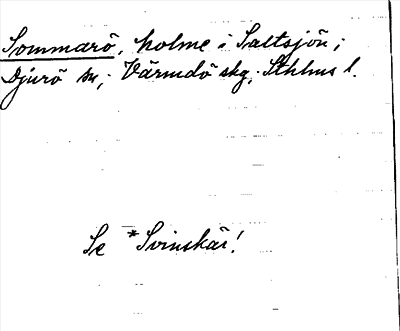 Sommarö, holme i Saltsjön;
Djurö sn; Värmdö skg; Sthlms l.
Se *Svinskär!